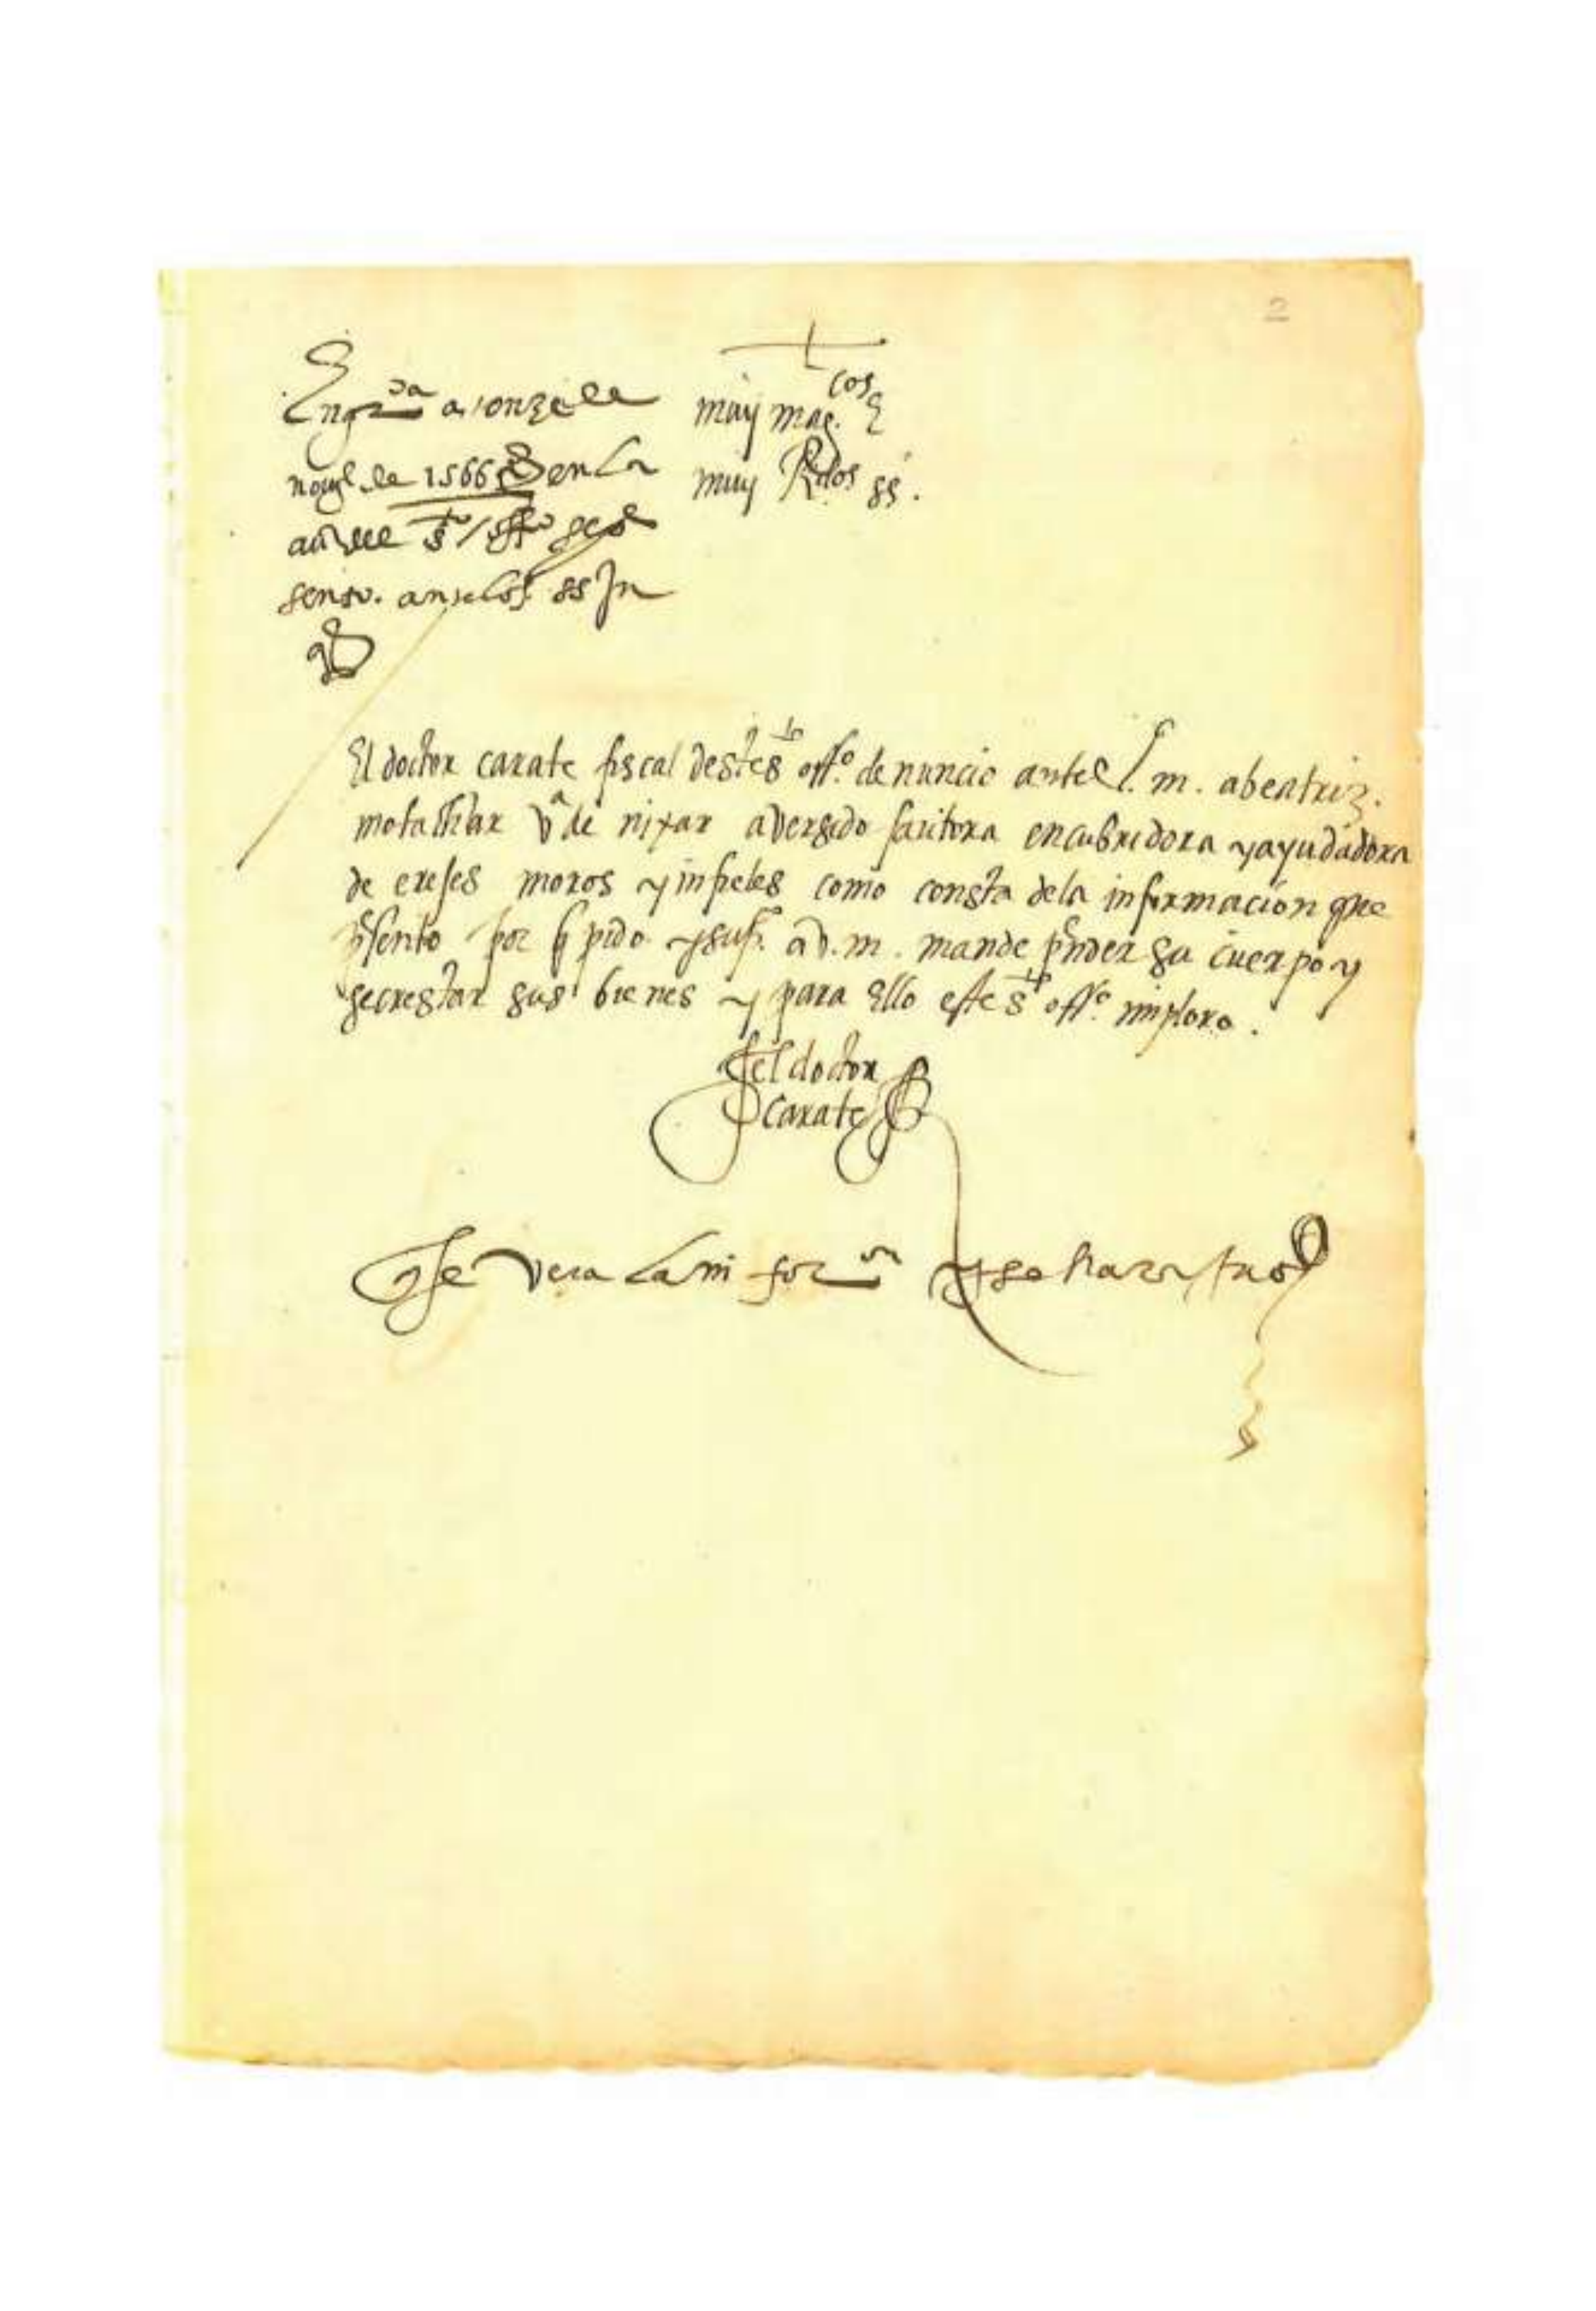 2
En grda a onze de
nove de 1566 en la
auda del sto offo
ante los ss In
muy magcos E
muy Rdos ss.
El doctor carate fiscal deste sto offo. denuncio ante v. m. a beatriz.
motaihar va de nixar aver sido fautora encubridora y ayudadora
de erejes moros y infieles como consta de la informacion que
psento por q pido y supco. a v. m. mande pnder su cuerpo y
secrestar sus bienes y para Ello este sto offo. imploro.
el doctor
carate
que se vera la informon y se hara justa